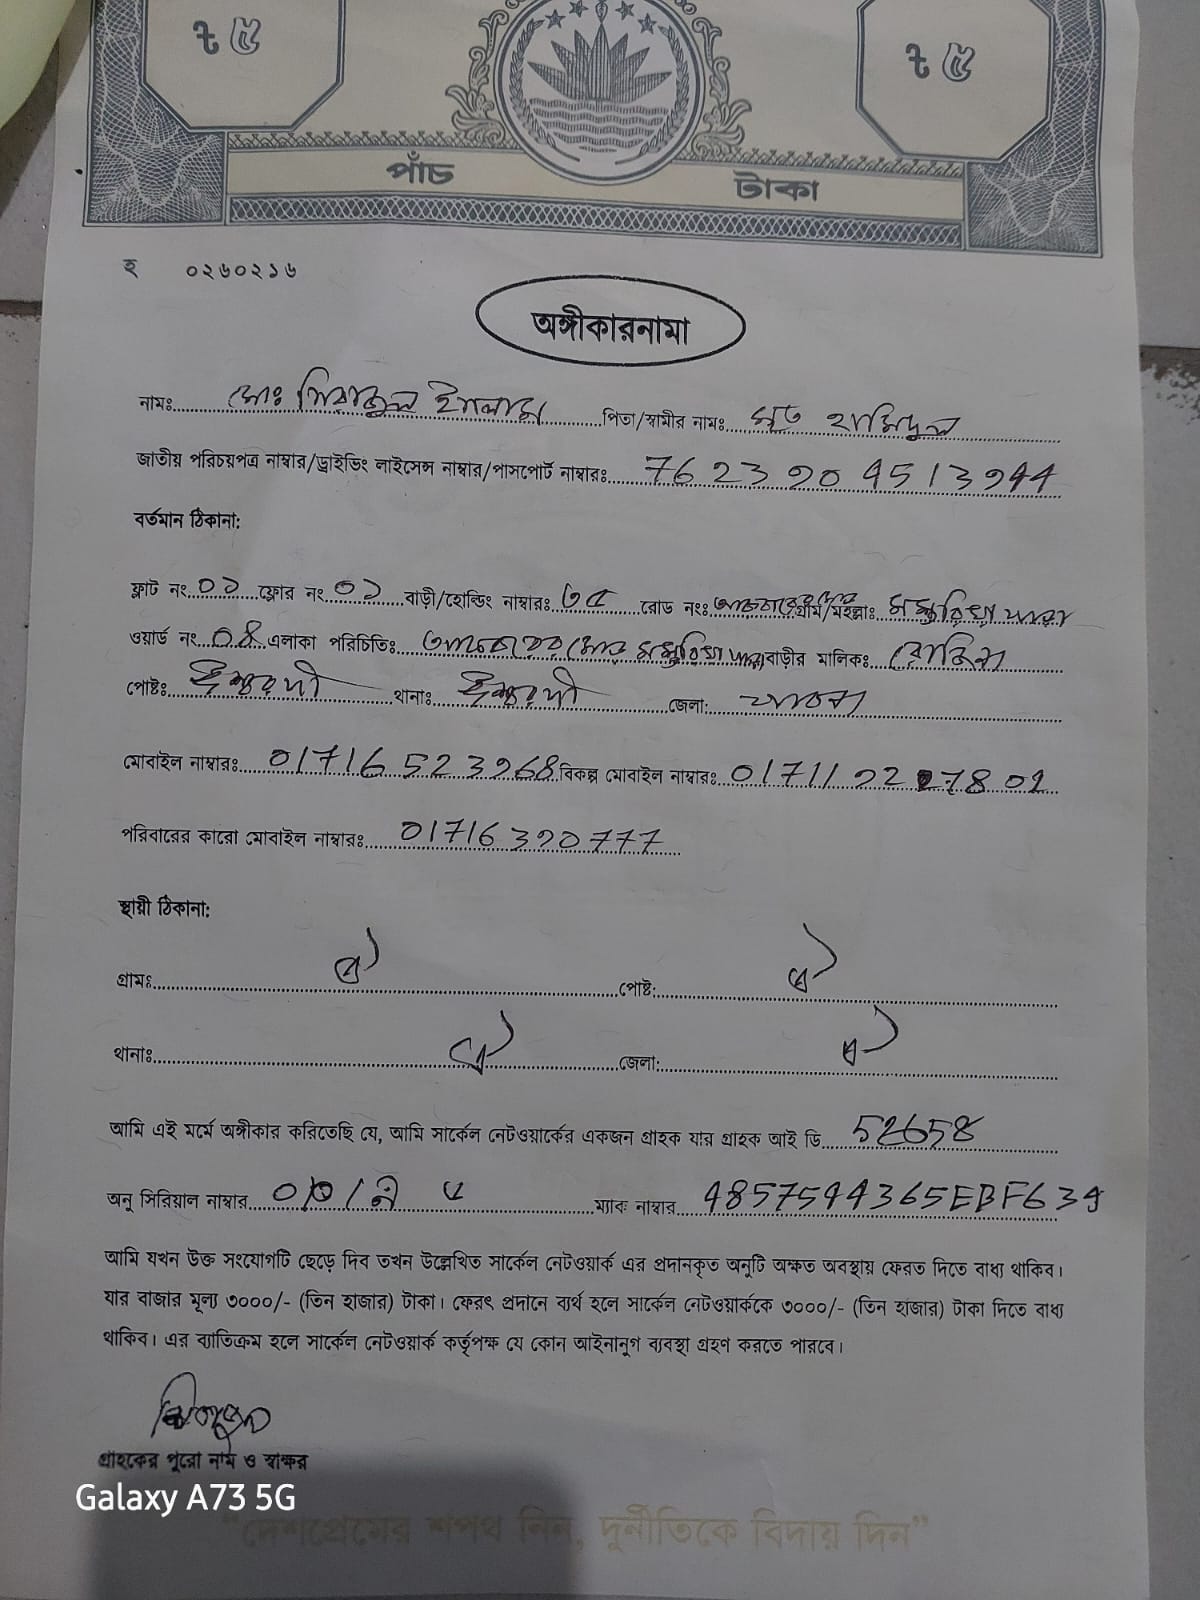 ট ৫ ট ৫
পাঁচ টাকা
হ ০২৬০২১৬
অঙ্গীকারনামা
নামঃ মোঃ সিরাজুল ইসলাম পিতা/স্বামীর নামঃ মৃত হামিদুল
জাতীয় পরিচয়পত্র নাম্বার/ড্রাইভিং লাইসেন্স নাম্বার/পাসপোর্ট নাম্বারঃ
বর্তমান ঠিকানা:
ফ্লাট নং ০১ ফ্লোর নং ০১ বাড়ী/হোল্ডিং নাম্বারঃ ৩৫ রোড নংঃ গ্রাম/মহল্লাঃ
ওয়ার্ড নং 04 এলাকা পরিচিতিঃ বাড়ীর মালিকঃ
পোষ্টঃ ঈশ্বরদী থানাঃ ঈশ্বরদী জেলা: পাবনা
মোবাইল নাম্বারঃ বিকল্প মোবাইল নাম্বারঃ
পরিবারের কারো মোবাইল নাম্বারঃ
স্থায়ী ঠিকানা:
গ্রামঃ ঐ পোষ্ট: ঐ
থানাঃ ঐ জেলা: ঐ
আমি এই মর্মে অঙ্গীকার করিতেছি যে, আমি সার্কেল নেটওয়ার্কের একজন গ্রাহক যার গ্রাহক আই ডি 52658
অনু সিরিয়াল নাম্বার ম্যাক নাম্বার
আমি যখন উক্ত সংযোগটি ছেড়ে দিব তখন উল্লেখিত সার্কেল নেটওয়ার্ক এর প্রদানকৃত অনুটি অক্ষত অবস্থায় ফেরত দিতে বাধ্য থাকিব।
যার বাজার মূল্য ৩০০০/- (তিন হাজার) টাকা। ফেরৎ প্রদানে ব্যর্থ হলে সার্কেল নেটওয়ার্ককে ৩০০০/- (তিন হাজার) টাকা দিতে বাধ্য
থাকিব। এর ব্যাতিক্রম হলে সার্কেল নেটওয়ার্ক কর্তৃপক্ষ যে কোন আইনানুগ ব্যবস্থা গ্রহণ করতে পারবে।
গ্রাহকের পুরো নাম ও স্বাক্ষর
Galaxy A73 5G
"দেশপ্রেমের শপথ নিন, দুর্নীতিকে বিদায় দিন"